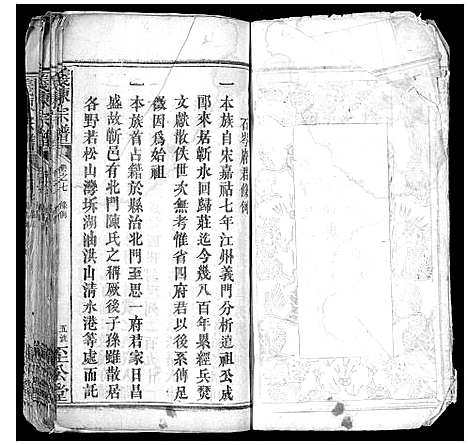 石岑府君條例
一本族自宋嘉祐七年江州義門分析道祖公成
郎來居蘄水回歸莊迄今幾八百年纍經兵燹
文獻散佚世次無考惟省四府君以後系傳足
徵因爲始祖
一本族首占籍於縣治北門至思一府君家日昌
盛故蘄邑有北門陳氏之稱厥後子孫雖散居
各野若松山灣坼湖油洪山清水港等處而託
義陳宗譜
卷之七
條例
五派
至公堂